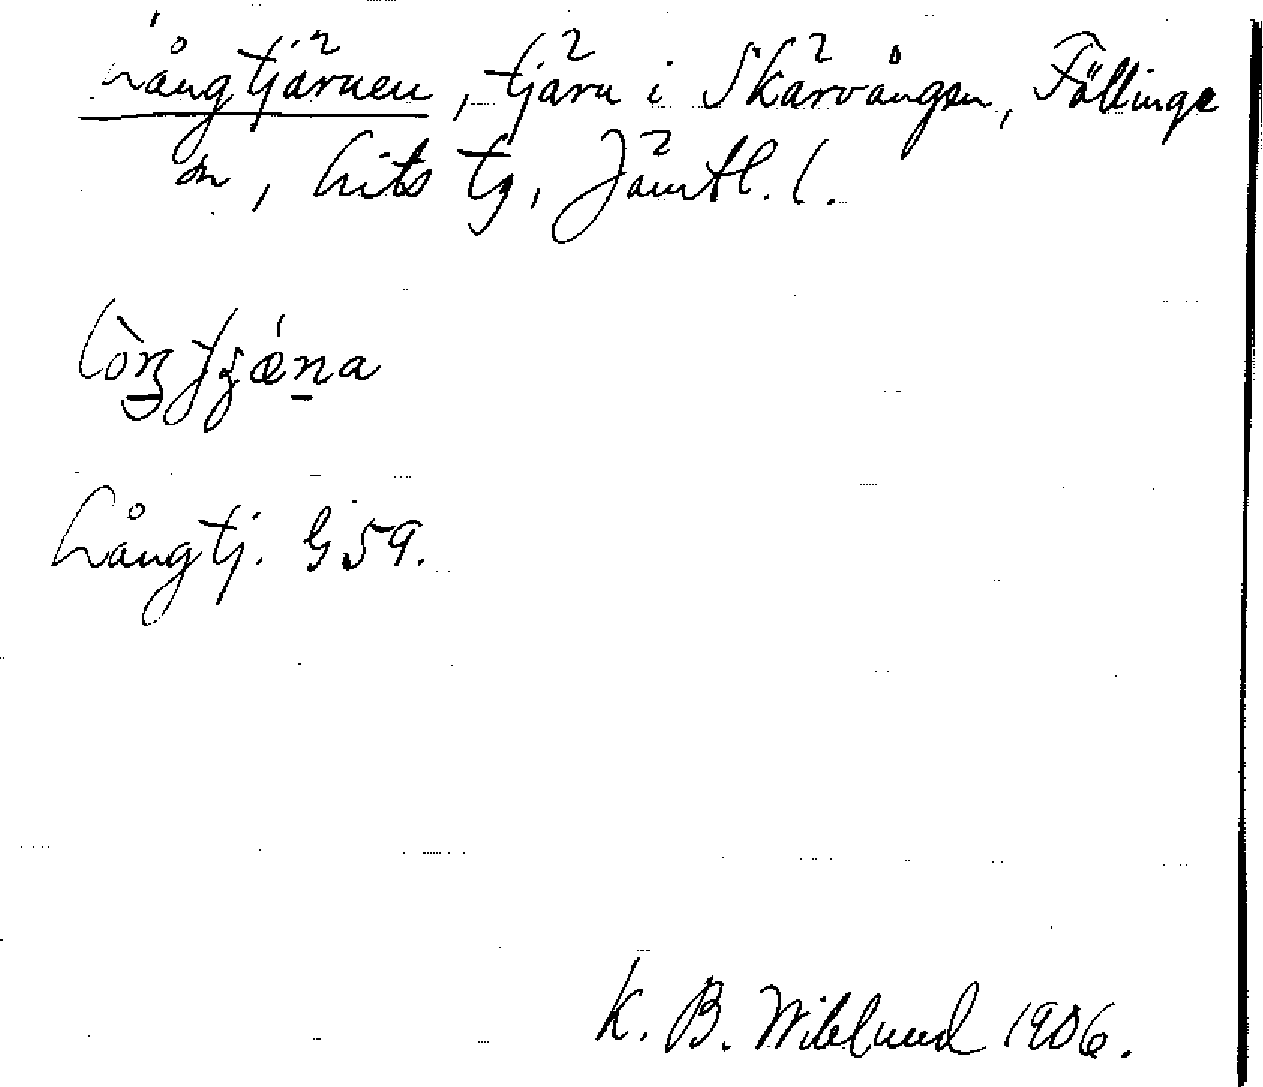 Långtjärnen, tjärn i Skärvången, Föllinge
sn, Lits tg, Jämtl. l.
Långtj. G 59.
K. B. Wiklund 1906.